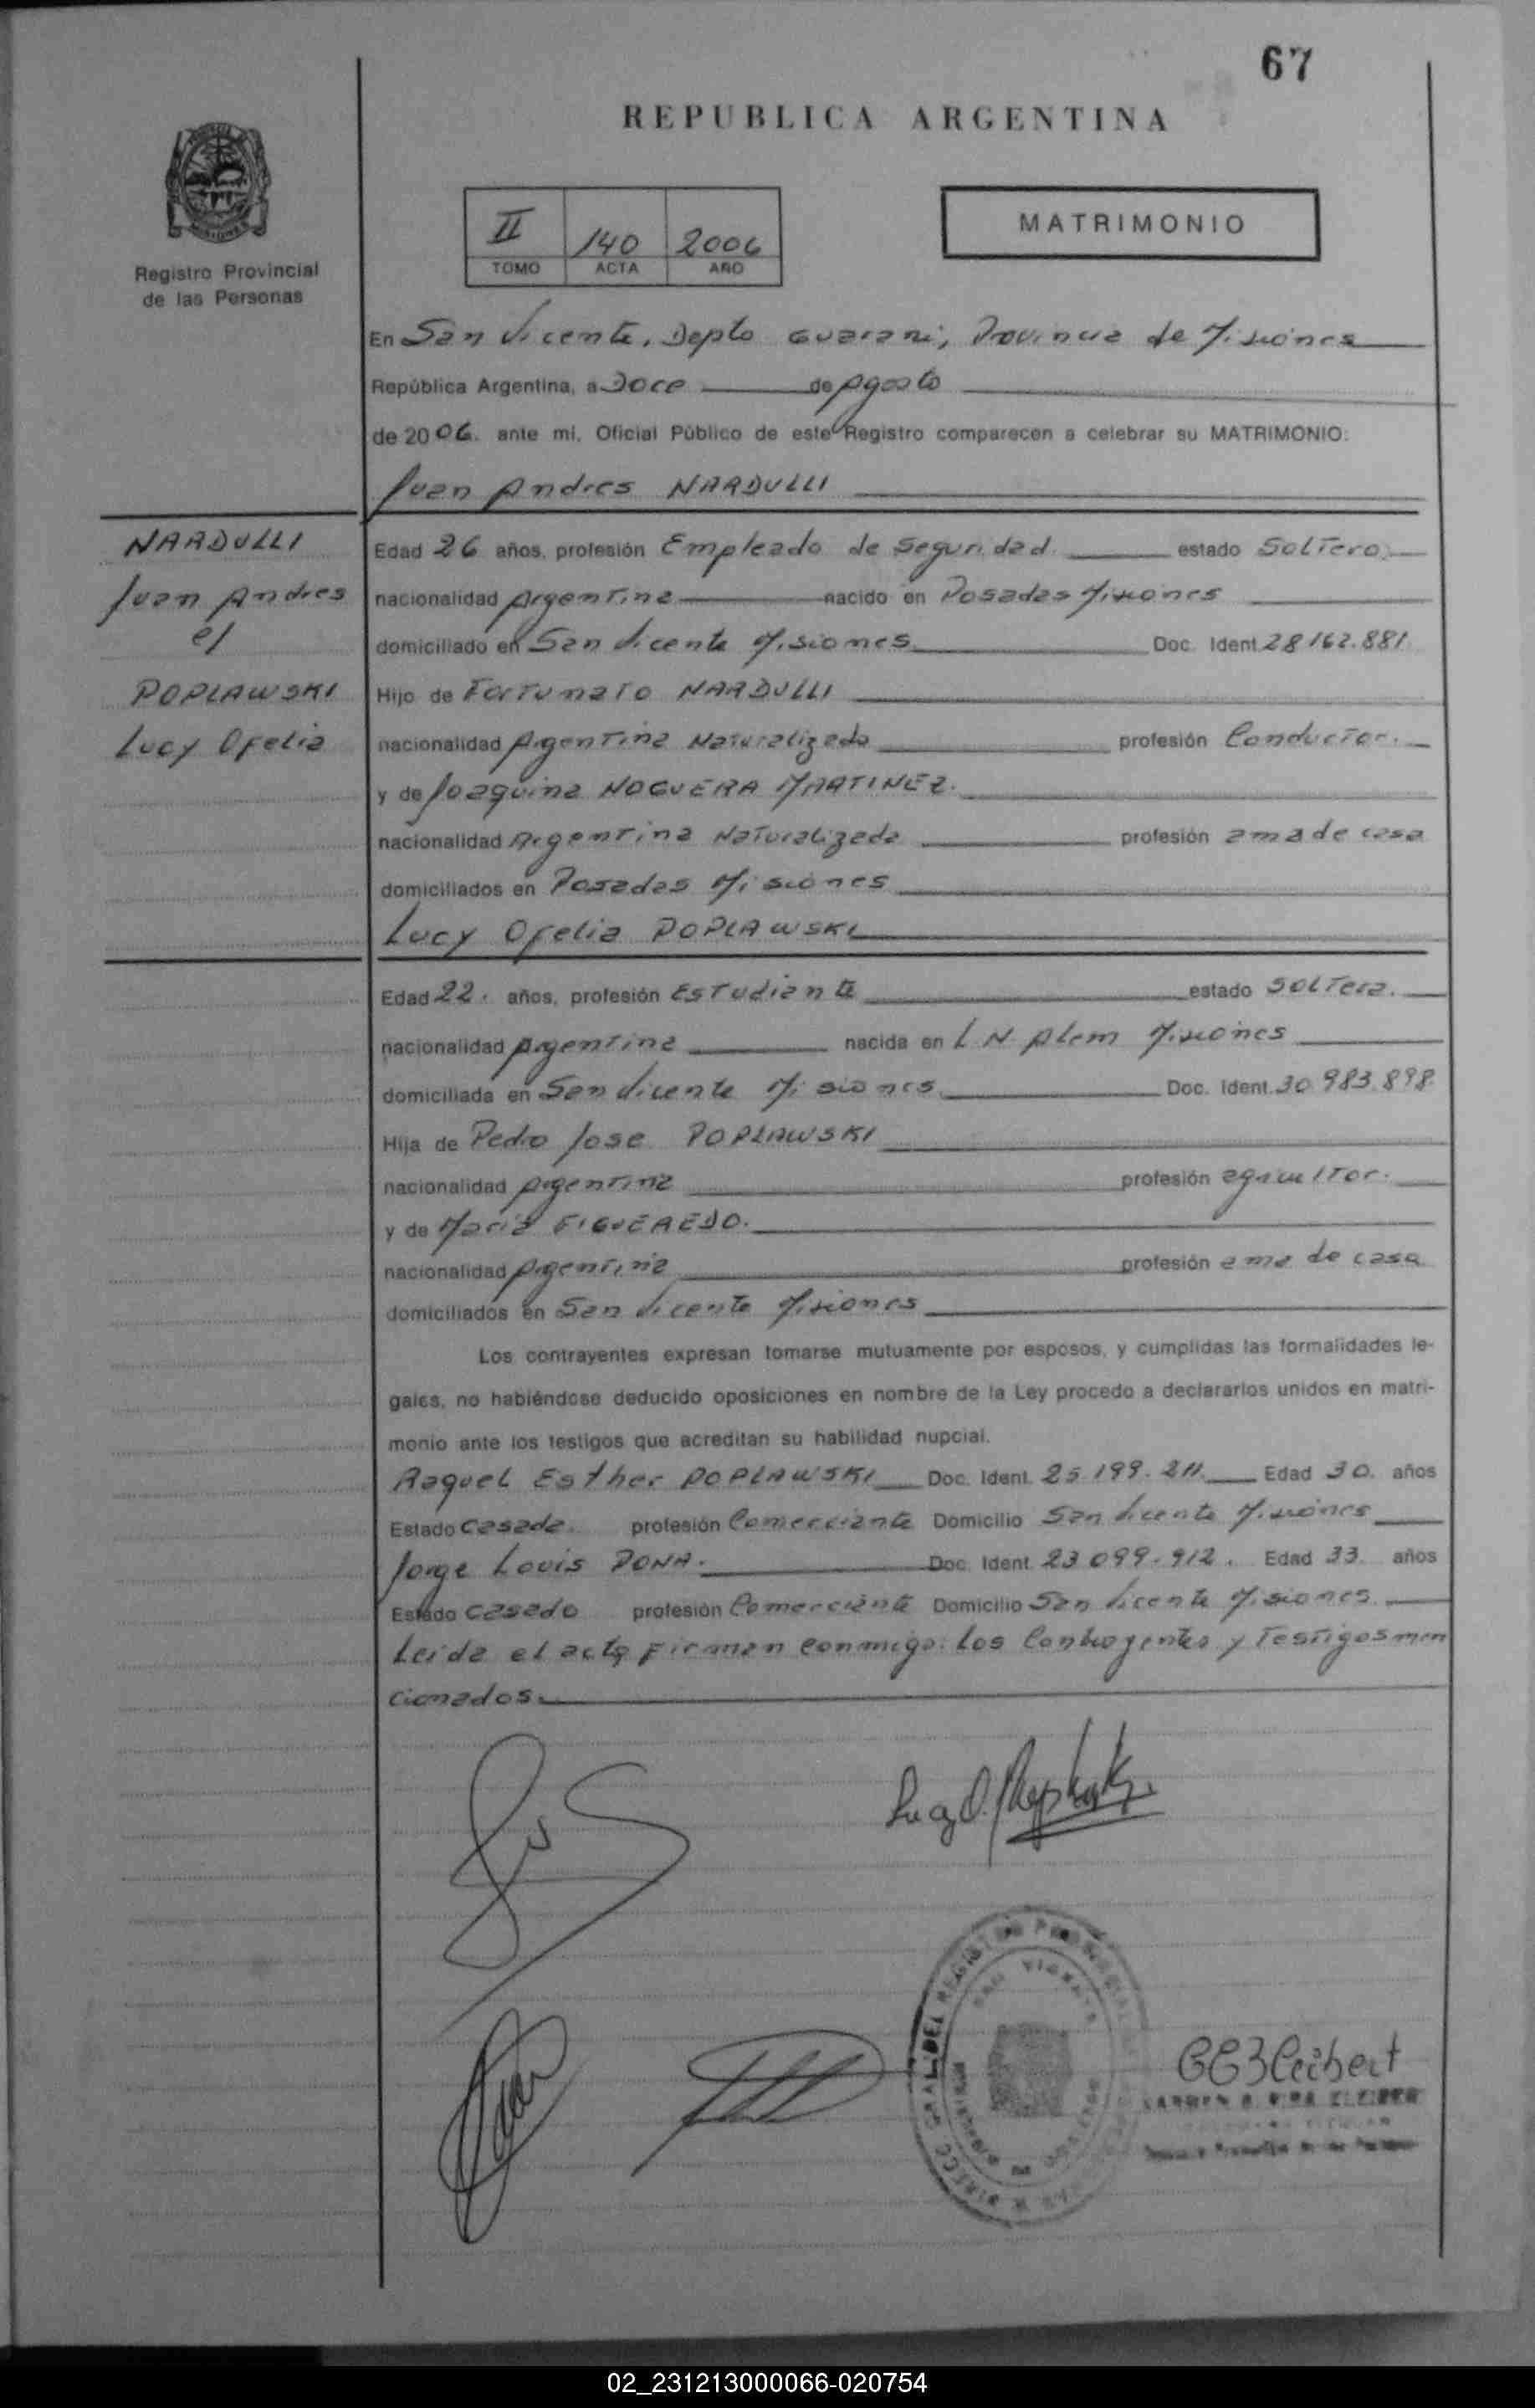 67
REPUBLICA ARGENTINA
II 140 2006
TOMO ACTA AÑO
MATRIMONIO
Registro Provincial
de las Personas
En San Vicente, Depto Guarani, Provincia de Misiones
República Argentina, a Doce de Agosto
de 2006. ante mí, Oficial Público de este Registro comparecen a celebrar su MATRIMONIO:
Juan Andres NARDULLI
NARDULLI
Juan Andres
POPLAWSKI
Lucy Ofelia
Edad 26 años, profesión Empleado de Seguridad estado Soltero
nacionalidad Argentina nacido en Posadas Misiones
domiciliado en San Vicente Misiones Doc. Ident. 28162.881
Hijo de Fortunato NARDULLI
nacionalidad Argentina Naturalizado profesión Conductor.
y de Joaquina NOGUERA MARTINEZ.
nacionalidad Argentina Naturalizada profesión ama de casa
domiciliados en Posadas Misiones
Lucy Ofelia POPLAWSKI
Edad 22. años, profesión Estudiante estado Soltera.
nacionalidad Argentina nacida en L N Alem Misiones
domiciliada en San Vicente Misiones Doc. Ident. 30 983.898
Hija de Pedro Jose POPLAWSKI
nacionalidad Argentina profesión agricultor.
y de Maria FIGUEREDO.
nacionalidad Argentina profesión ama de casa
domiciliados en San Vicente Misiones
Los contrayentes expresan tomarse mutuamente por esposos, y cumplidas las formalidades le-
gales, no habiéndose deducido oposiciones en nombre de la Ley procedo a declararlos unidos en matri-
monio ante los testigos que acreditan su habilidad nupcial.
Raquel Esther POPLAWSKI Doc. Ident. 25.199.211 Edad 30. años
Estado Casada. profesión Comerciante Domicilio San Vicente Misiones
Jorge Louis DONA. Doc. Ident. 23 099.912. Edad 33. años
Estado Casado profesión Comerciante Domicilio San Vicente Misiones
Leida el acta Firman conmigo: Los Contrayentes y Testigos men
cionados.
02_231213000066-020754